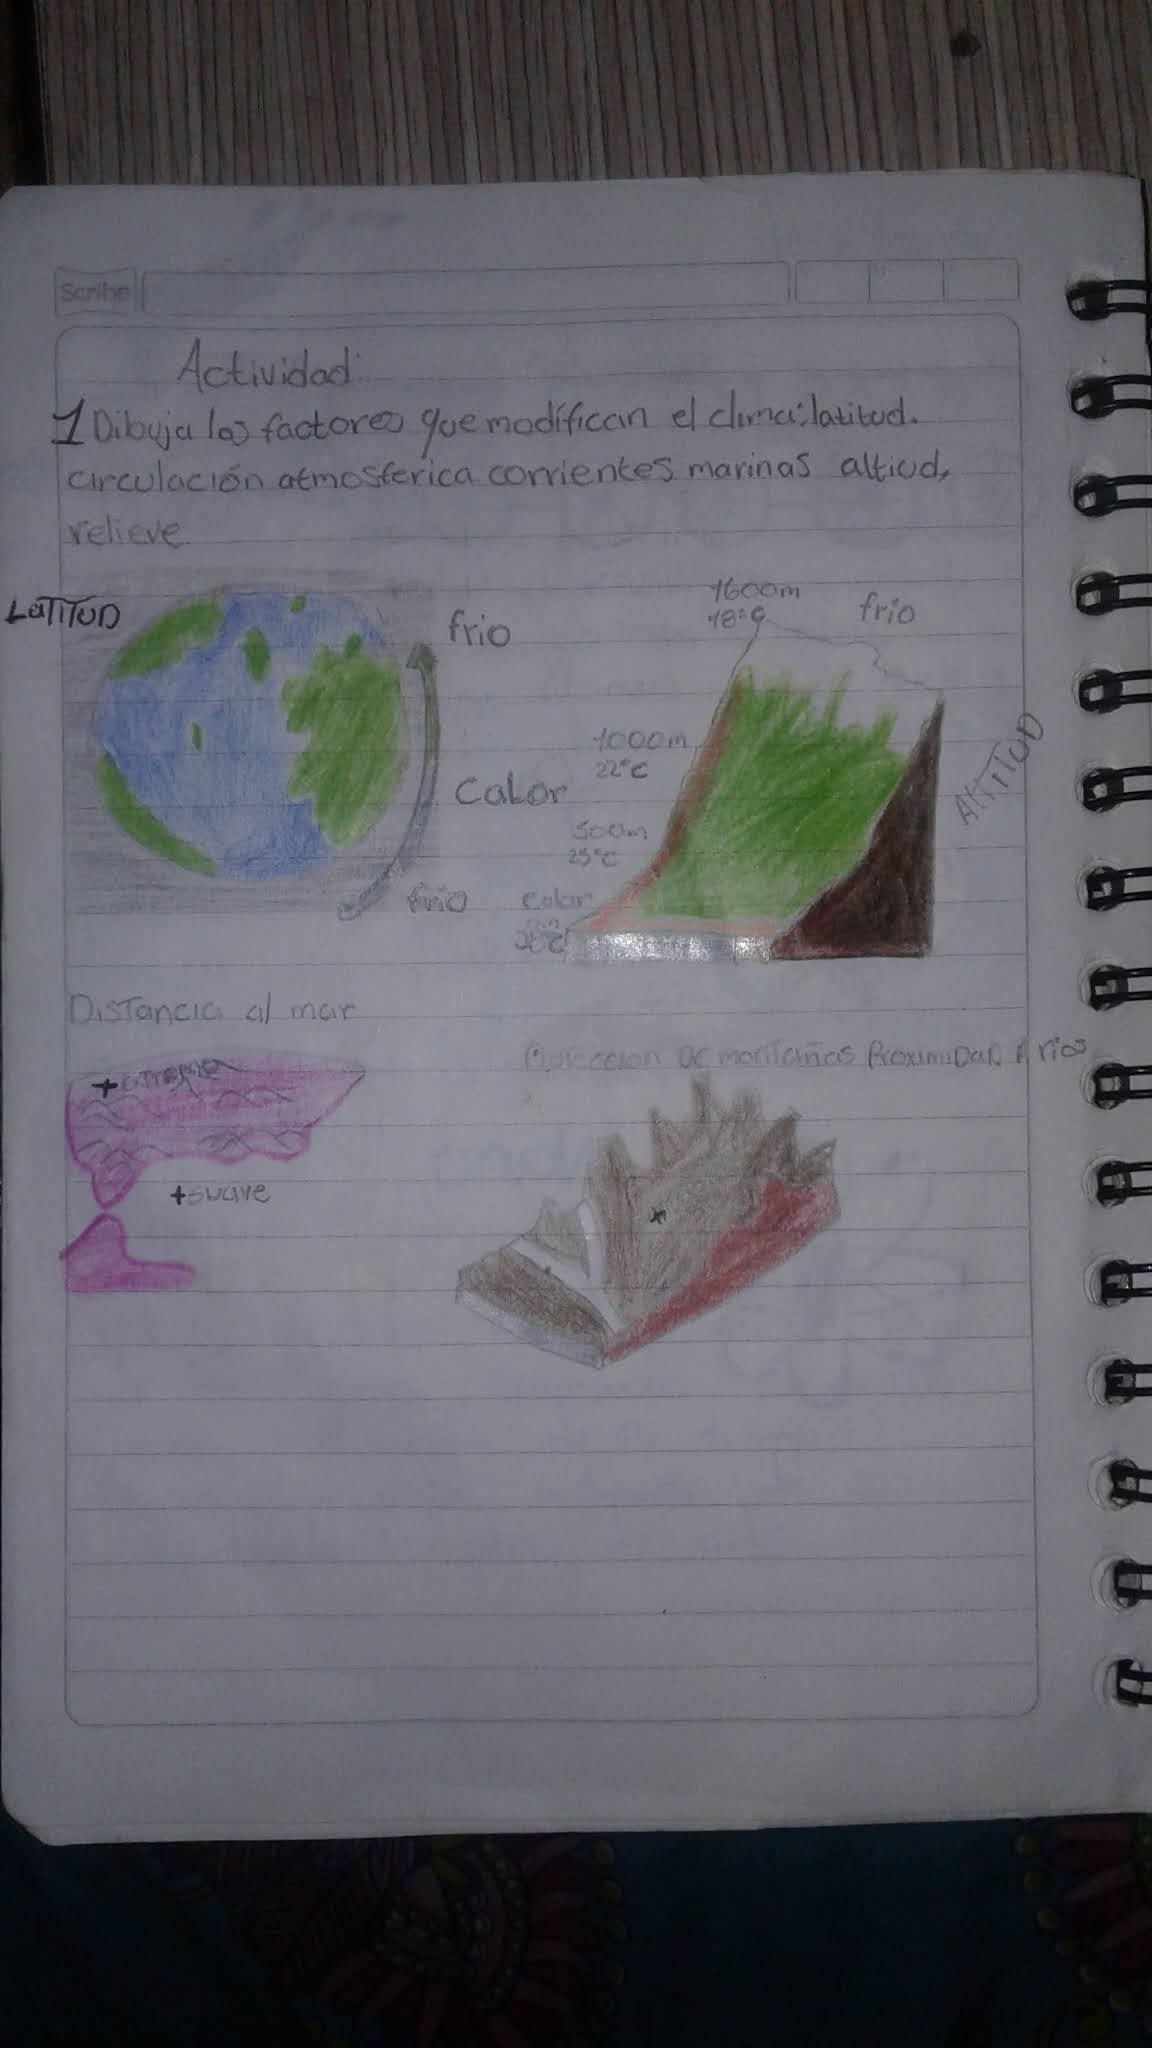 Scribe
Actividad
1 Dibuja los factores que modifican el clima: latitud.
circulación atmosferica corrientes marinas altiud,
relieve
LaTiTUD
frio
Calor
frio
1600m
18°c
frio
1000m
22°c
500m
25°c
Calor
AltiTUD
Distancia al mar
+extremo
+suave
De montañas Proximidad A rios